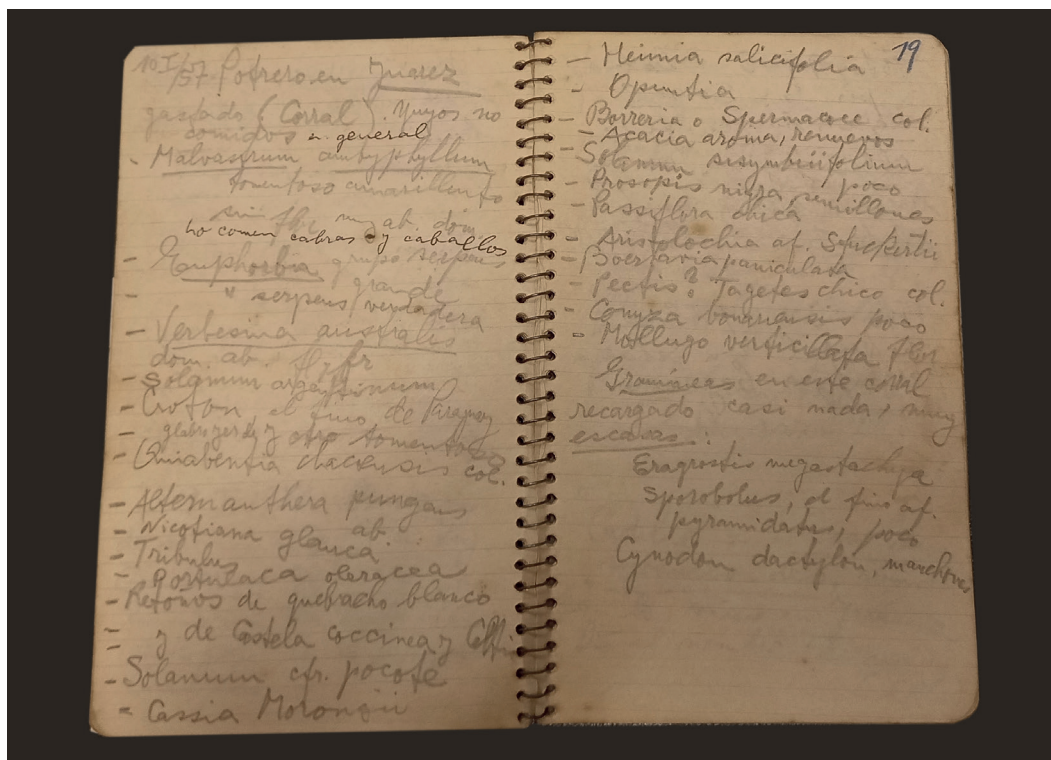 10 I/57 Potrero en Juarez
gastado (Corral). Yuyos no
comidos en general
- Malvastrum amblyphyllum
tomentoso amarillento
sin flor muy ab. dom.
no comen cabras y caballos
- Euphorbia grupo serpens
grande
- " serpens verdadera
- Verbesina australis
dom. ab. fl, fr
- Solanum argentinum
- Croton, el fino de Paraguay
glabro verde y otro tomentoso
- Quiabentia chacensis col.
- Alternanthera pungens
ab.
- Nicotiana glauca.
- Tribulus
- Portulaca oleracea
- Retoños de quebracho blanco
- y de Castela coccinea y Celtis
- Solanum cfr. pocote
- Cassia Morongii
19
- Heimia salicifolia
- Opuntia
- Borreria o Spermacoce col.
- Acacia aroma, renuevos
- Solanum sisymbriifolium
poco
- Prosopis nigra, semillones
- Passiflora chica
- Aristolochia af.
- Boerhavia paniculata
- Pectis? Tagetes chico col.
- Conyza bonariensis poco
- Mollugo verticillata flor
Gramíneas en este corral
recargado casi nada, muy
escasas.:
Eragrostis megastachya
Sporobolus, el fino af.
pyramidatus, poco
Cynodon dactylon, manchones